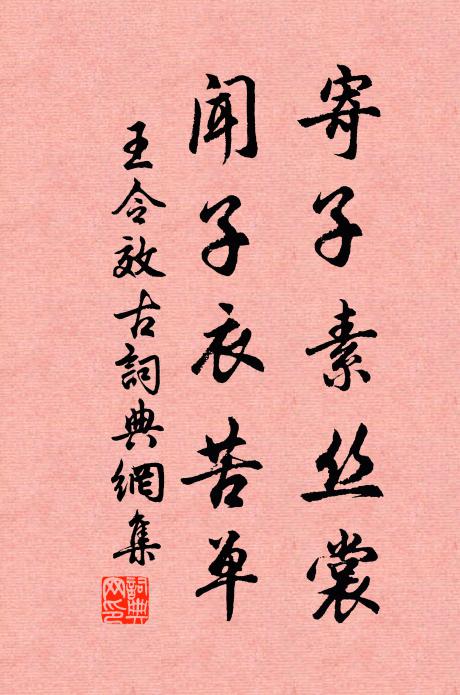 寄子素丝裳
闻子衣苦单
王令效古詞典網集
詞典网印